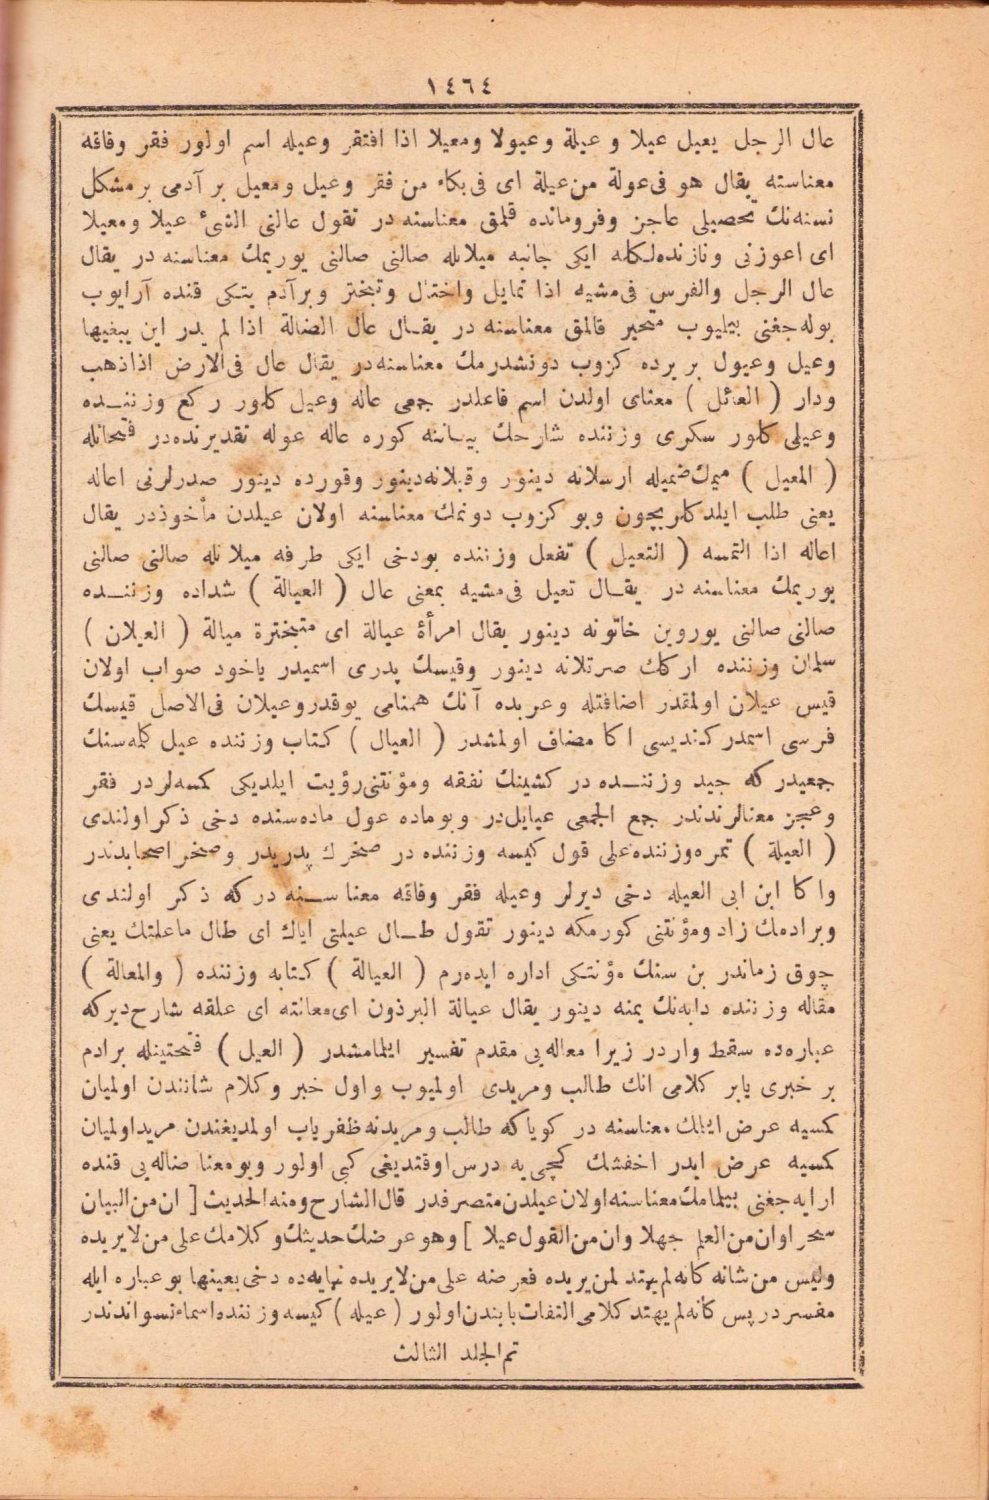 ١٤٦٤
عال الرجل يعيل عيلا و عيلة وعيولا ومعيلا اذا افتقر وعيله اسم اولور فقر وفاقه
معناسنه يقال هو فى عولة من عيلة اى فى بكاء من فقر وعيل ومعيل بر آدمى بر مشكل
نسنه‌نك تحصيلى عاجز وفرومانده قلمق معناسنه در تقول عالنى الشئ عيلا ومعيلا
اى اعوزنى ونازنده‌لكله ايكى جانبه ميلانله صالنى صالنى يوريمك معناسنه در يقال
عال الرجل والفرس فى مشيه اذا تمايل واختال وتبختر وبرآدم يتكى قنده آرايوب
بوله جغنى بيليوب متحير قالمق معناسنه در يقال عال الضالة اذا لم يدر اين يبغيها
وعيل وعيول بر يرده كزوب دونشدرمك معناسنه‌در يقال عال فى الارض اذا ذهب
ودار ( العائل ) معناى اولدن اسم فاعلدر جمعى عاله وعيل كلور ركع وزننده
وعيلى كلور سكرى وزننده شارحك بيانه كوره عاله عوله تقديرنده‌در فتحاتله
( المعيل ) ميمك ضميله ارسلانه دينور وقبلانه‌دينور وقورده دينور صدرلرنى اعاله
يعنى طلب ايلدكلريچون وبو كزوب دونمك معناسنه اولان عيلدن مأخوذدر يقال
اعاله اذا التمسه ( التعيل ) تفعل وزننده بودخى ايكى طرفه ميلانله صالنى صالنى
يوريمك معناسنه در يقال تعيل فى مشيه بمعنى عال ( العيالة ) شداده وزننده
صالنى صالنى يوروين خاتونه دينور يقال امرأة عيالة اى متبخترة ميالة ( العيلان )
سلمان وزننده اركك صرتلانه دينور وقيسك پدرى اسميدر ياخود صواب اولان
قيس عيلان اولمقدر اضافتله وعربده آنك همنامى يوقدر وعيلان فى الاصل قيسك
فرسى اسمدر كنديسى اكا مضاف اولمشدر ( العيال ) كتاب وزننده عيل كلمه‌سنك
جمعيدر كه جيد وزننده در كشينك نفقه ومؤنتنى رؤيت ايلديكى كمسه‌لردر فقر
وعجز معنالرندندر جمع الجمعى عيايل‌در وبو ماده عول ماده‌سنده دخى ذكر اولندى
( العيلة ) تمره وزننده على قول كيسه وزننده در صخرك پدريدر وصخر اصحابدندر
واكا ابن ابى العيله دخى ديرلر وعيله فقر وفاقه معناسنه دركه ذكر اولندى
وبراده‌مك زاد ومؤنتنى كورمكه دينور تقول طال عيلتى اياك اى طال ماعلتك يعنى
چوق زماندر بن سنك مؤنتكى اداره ايده‌رم ( العيالة ) كتابه وزننده ( والمعالة )
مقاله وزننده دابه‌نك يمنه دينور يقال عيالة البرذون اى معالته اى علفه شارح ديركه
عباره‌ده سقط واردر زيرا معاله‌يى مقدم تفسير ايلمامشدر ( العيل ) فتحتينله برادم
بر خبرى يابر كلامى انك طالب ومريدى اولميوب واول خبر وكلام شانندن اولميان
كمسيه عرض ايلمك معناسنه در كويا كه طالب ومريدنه ظفرياب اولمديغندن مريد اولميان
كمسيه عرض ايدر اخفشك كچى‌يه درس اوقتديغى كبى اولور وبو معنا ضاله‌يى قنده
ارايه جغنى بيلمامك معناسنه اولان عيلدن متصرفدر قال الشارح ومنه الحديث [ ان من البيان
سحرا وان من العلم جهلا وان من القول عيلا ] وهو عرضك حديثك وكلامك على من لا يريده
وليس من شانه كانه لم يهتد لمن يريده فعرضه على من لا يريده نهايه‌ده دخى بعينها بو عباره ايله
مفسردر پس كأنه لم يهتد كلامى التفات بابندن اولور ( عيله ) كيسه وزننده اسماء نسواندندر
تم الجلد الثالث